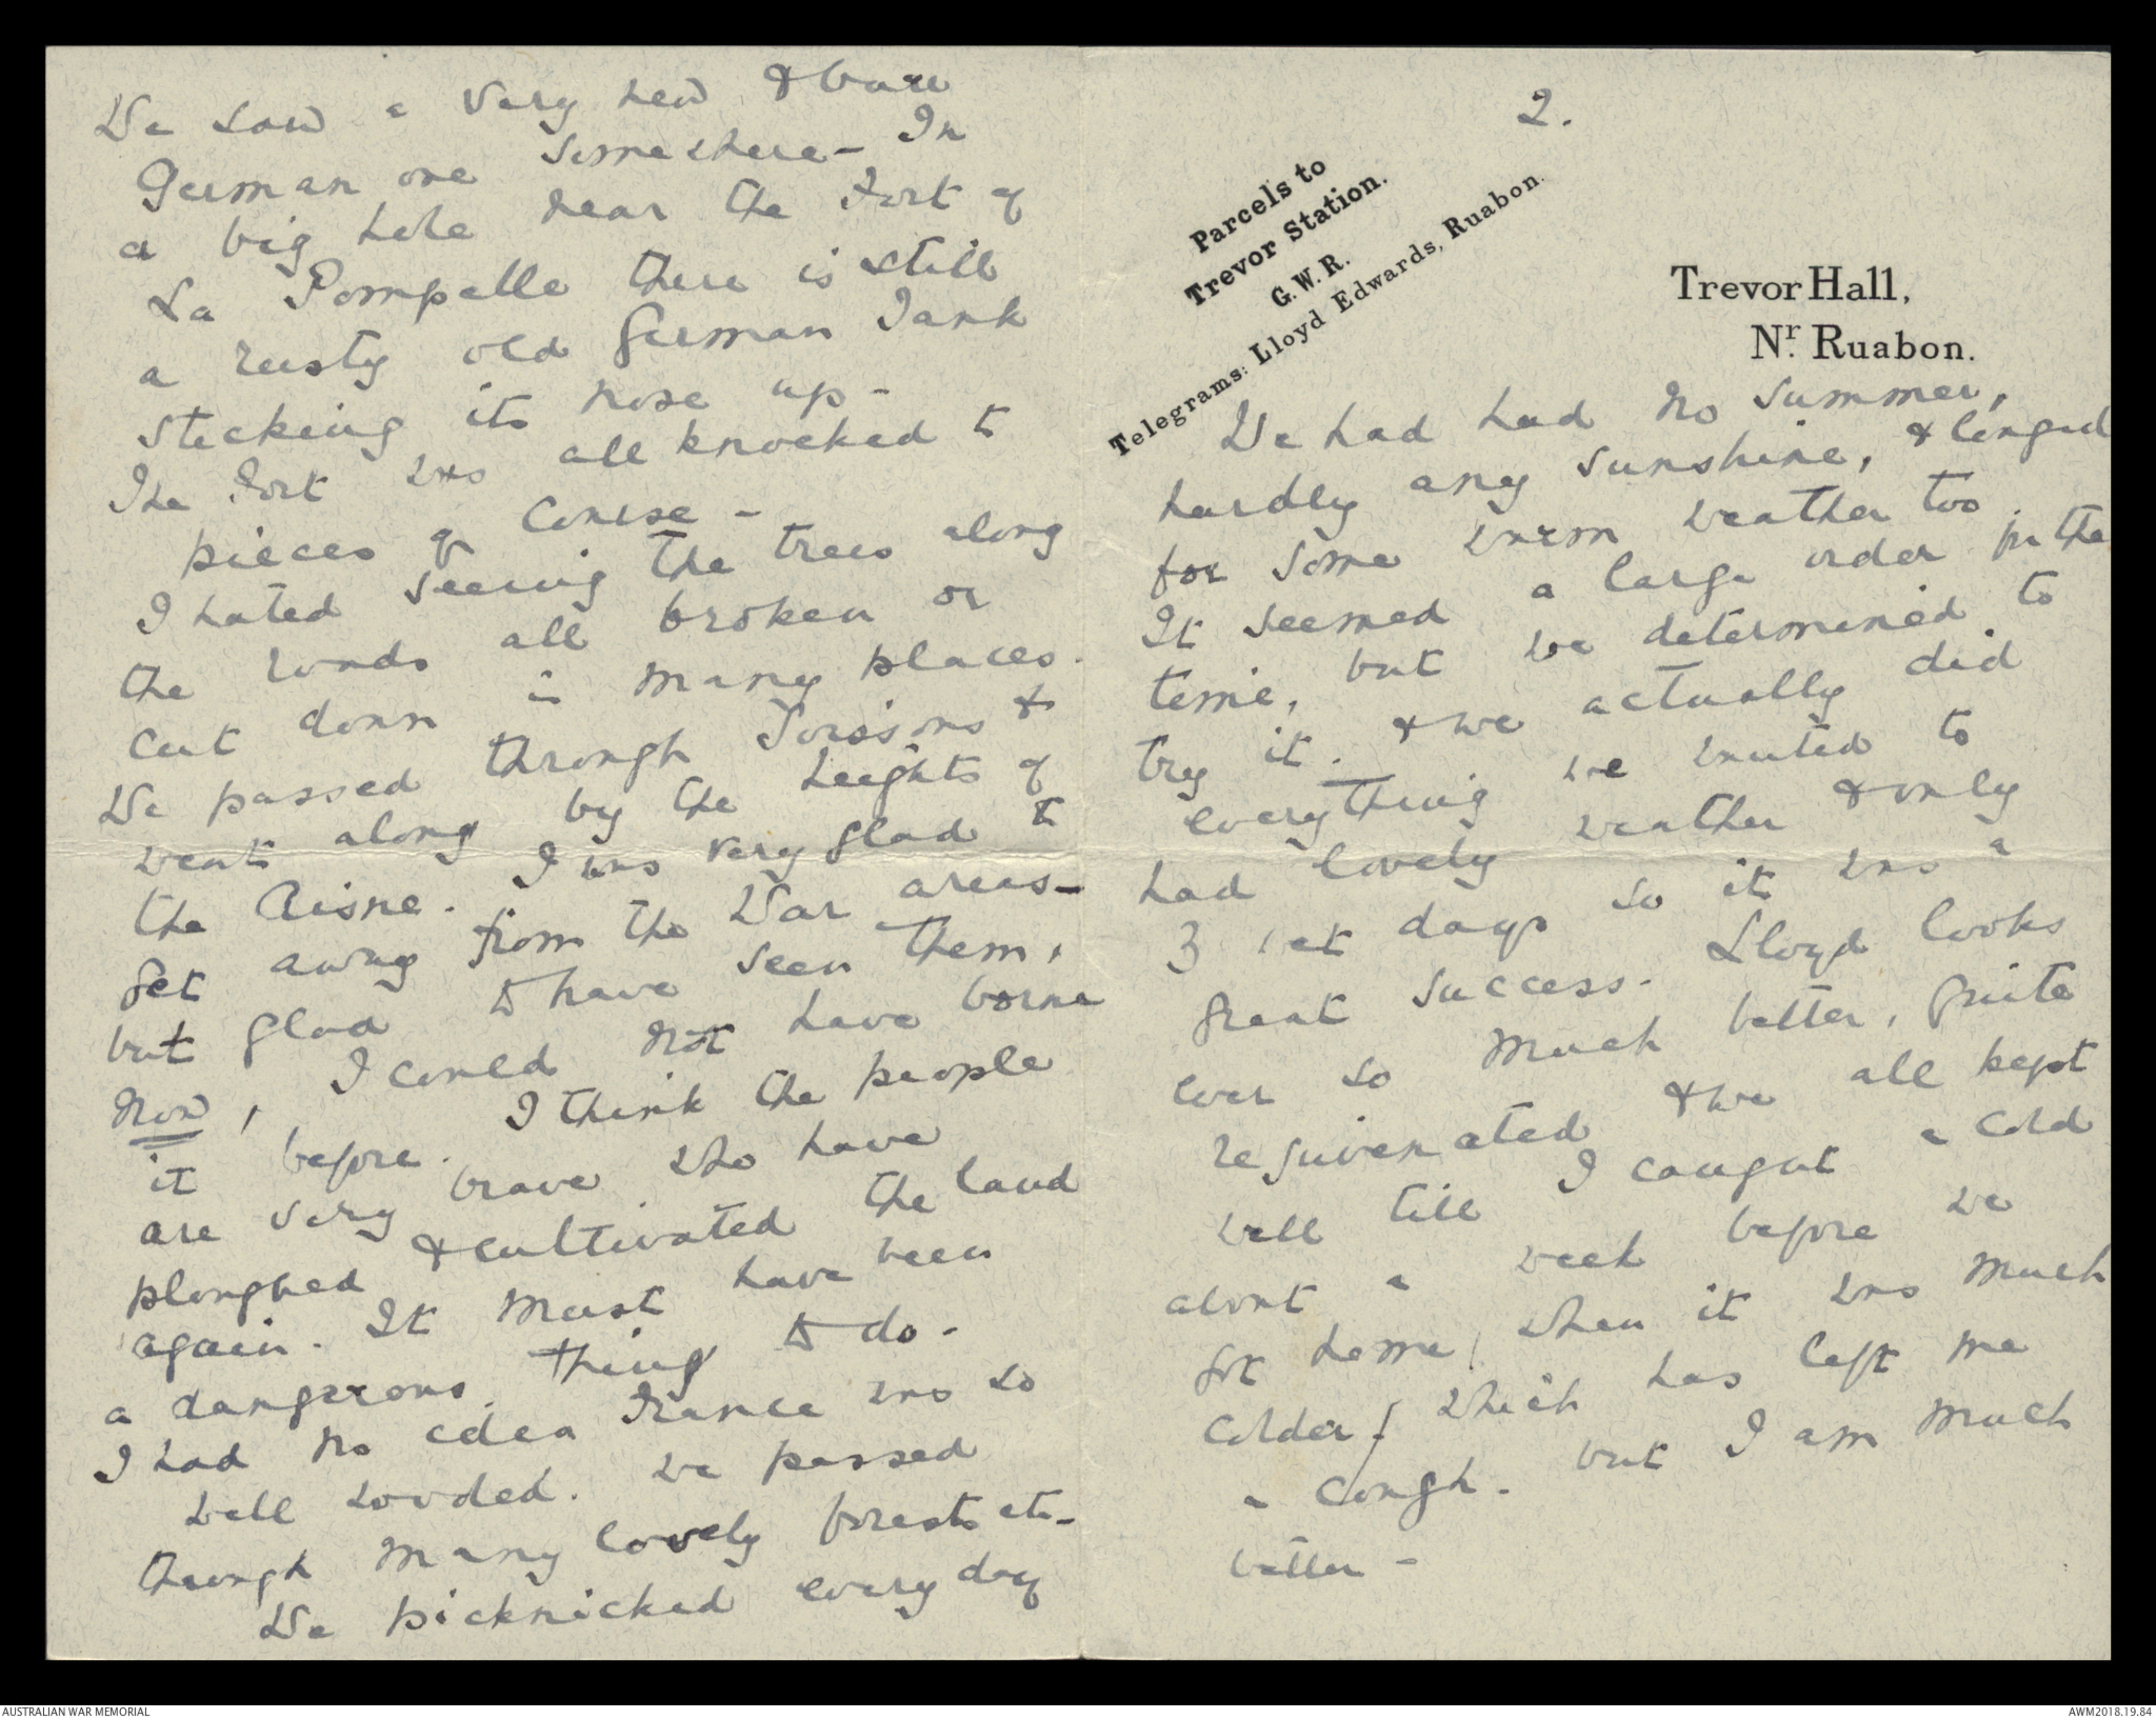 We saw a very new & bare
German one somewhere - In
a big hole near the Fort of
La Pompelle there is still
a rusty old German Tank
sticking its nose up -
The Fort was all knocked to
pieces of course -
I hated seeing the trees along
the roads all broken or
cut down in many places.
We passed through Soissons &
went along by the heights of
the Aisne. I was very glad to
get away from the War areas -
but glad to have seen them,
now, I could not have borne
it before. I think the people
are very brave who have
ploughed & cultivated the land
again. It must have been
a dangerous thing to do -
I had no idea France was so
well wooded. We passed
through many lovely forests etc -
We picknicked every day
2.
Parcels to
Trevor Station.
G.W.R.
Telegrams: Lloyd Edwards, Ruabon.
Trevor Hall,
Nr. Ruabon.
We had had no summer,
hardly any sunshine, & longed
for some warm weather too.
It seemed a large order for the
time, but we determined to
try it. & we actually did
everything we wanted to
had lovely weather & only
3 wet days so it was a
great success. Lloyd looks
ever so much better, quite
rejuvenated & we all kept
well till I caught a cold
about a week before we
got home, when it was much
colder, which has left me
a cough. but I am much
better -
AUSTRALIAN WAR MEMORIAL
AWM2018.19.84